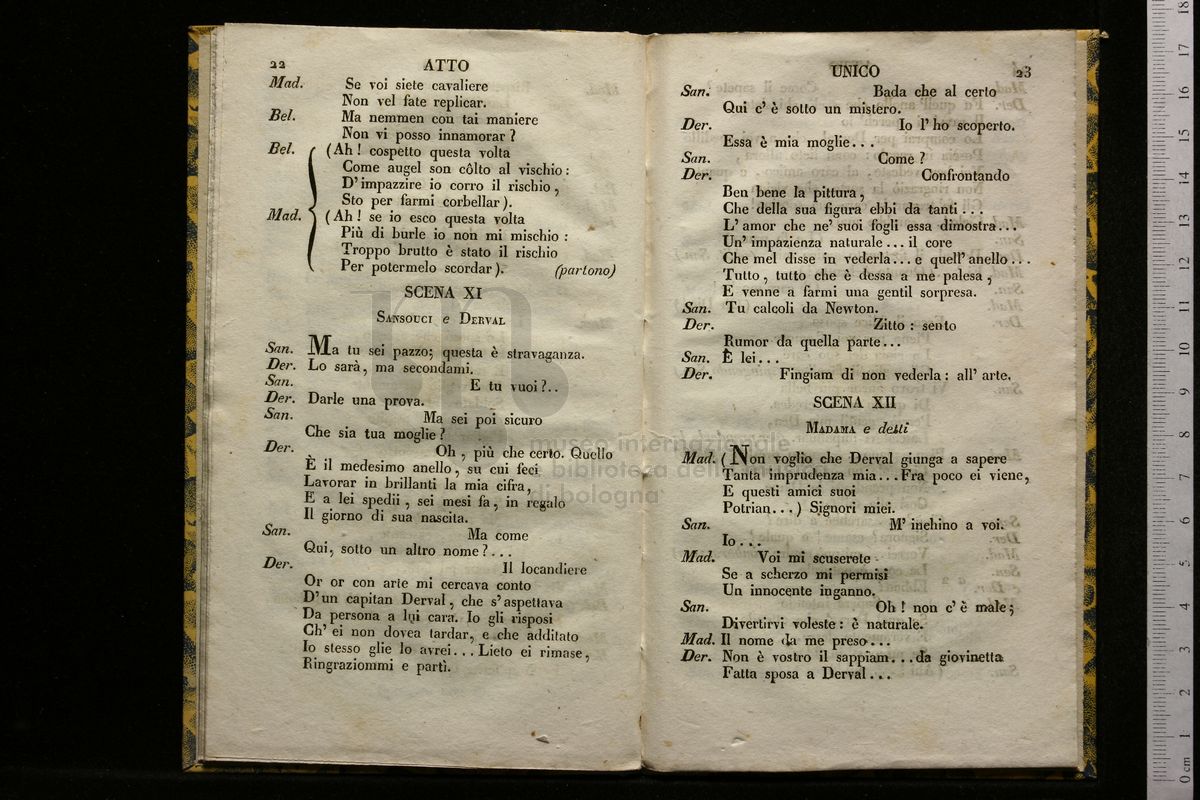 22 ATTO
Mad. Se voi siete cavaliere
Non vel fate replicar.
Bel. Ma nemmen con tai maniere
Non vi posso innamorar?
Bel. (Ah! cospetto questa volta
Come augel son côlto al vischio:
D'impazzire io corro il rischio,
Sto per farmi corbellar).
Mad. (Ah! se io esco questa volta
Più di burle io non mi mischio:
Troppo brutto è stato il rischio
Per potermelo scordar). (partono)
SCENA XI
SANSOUCI e DERVAL
San. Ma tu sei pazzo; questa è stravaganza.
Der. Lo sarà, ma secondami.
San. E tu vuoi?..
Der. Darle una prova.
San. Ma sei poi sicuro
Che sia tua moglie?
Der. Oh, più che certo. Quello
È il medesimo anello, su cui feci
Lavorar in brillanti la mia cifra,
E a lei spedii, sei mesi fa, in regalo
Il giorno di sua nascita.
San. Ma come
Qui, sotto un altro nome?...
Der. Il locandiere
Or or con arte mi cercava conto
D'un capitan Derval, che s'aspettava
Da persona a lui cara. Io gli risposi
Ch'ei non dovea tardar, e che additato
Io stesso glie lo avrei... Lieto ei rimase,
Ringraziommi e partì.
UNICO 23
San. Bada che al certo
Qui c'è sotto un mistero.
Der. Io l'ho scoperto.
Essa è mia moglie...
San. Come?
Der. Confrontando
Ben bene la pittura,
Che della sua figura ebbi da tanti...
L'amor che ne' suoi fogli essa dimostra...
Un'impazienza naturale... il core
Che mel disse in vederla... e quell'anello...
Tutto, tutto che è dessa a me palesa,
E venne a farmi una gentil sorpresa.
San. Tu calcoli da Newton.
Der. Zitto: sento
Rumor da quella parte...
San. È lei...
Der. Fingiam di non vederla: all'arte.
SCENA XII
MADAMA e detti
Mad. (Non voglio che Derval giunga a sapere
Tanta imprudenza mia... Fra poco ei viene,
E questi amici suoi
Potrian...) Signori miei.
San. M'inchino a voi.
Io...
Mad. Voi mi scuserete
Se a scherzo mi permisi
Un innocente inganno.
San. Oh! non c'è male;
Divertirvi voleste: è naturale.
Mad. Il nome da me preso...
Der. Non è vostro il sappiam... da giovinetta
Fatta sposa a Derval...
museo internazionale
e biblioteca della musica
di bologna
18
17
16
15
14
13
12
11
10
9
8
7
6
5
4
3
2
1
0 cm